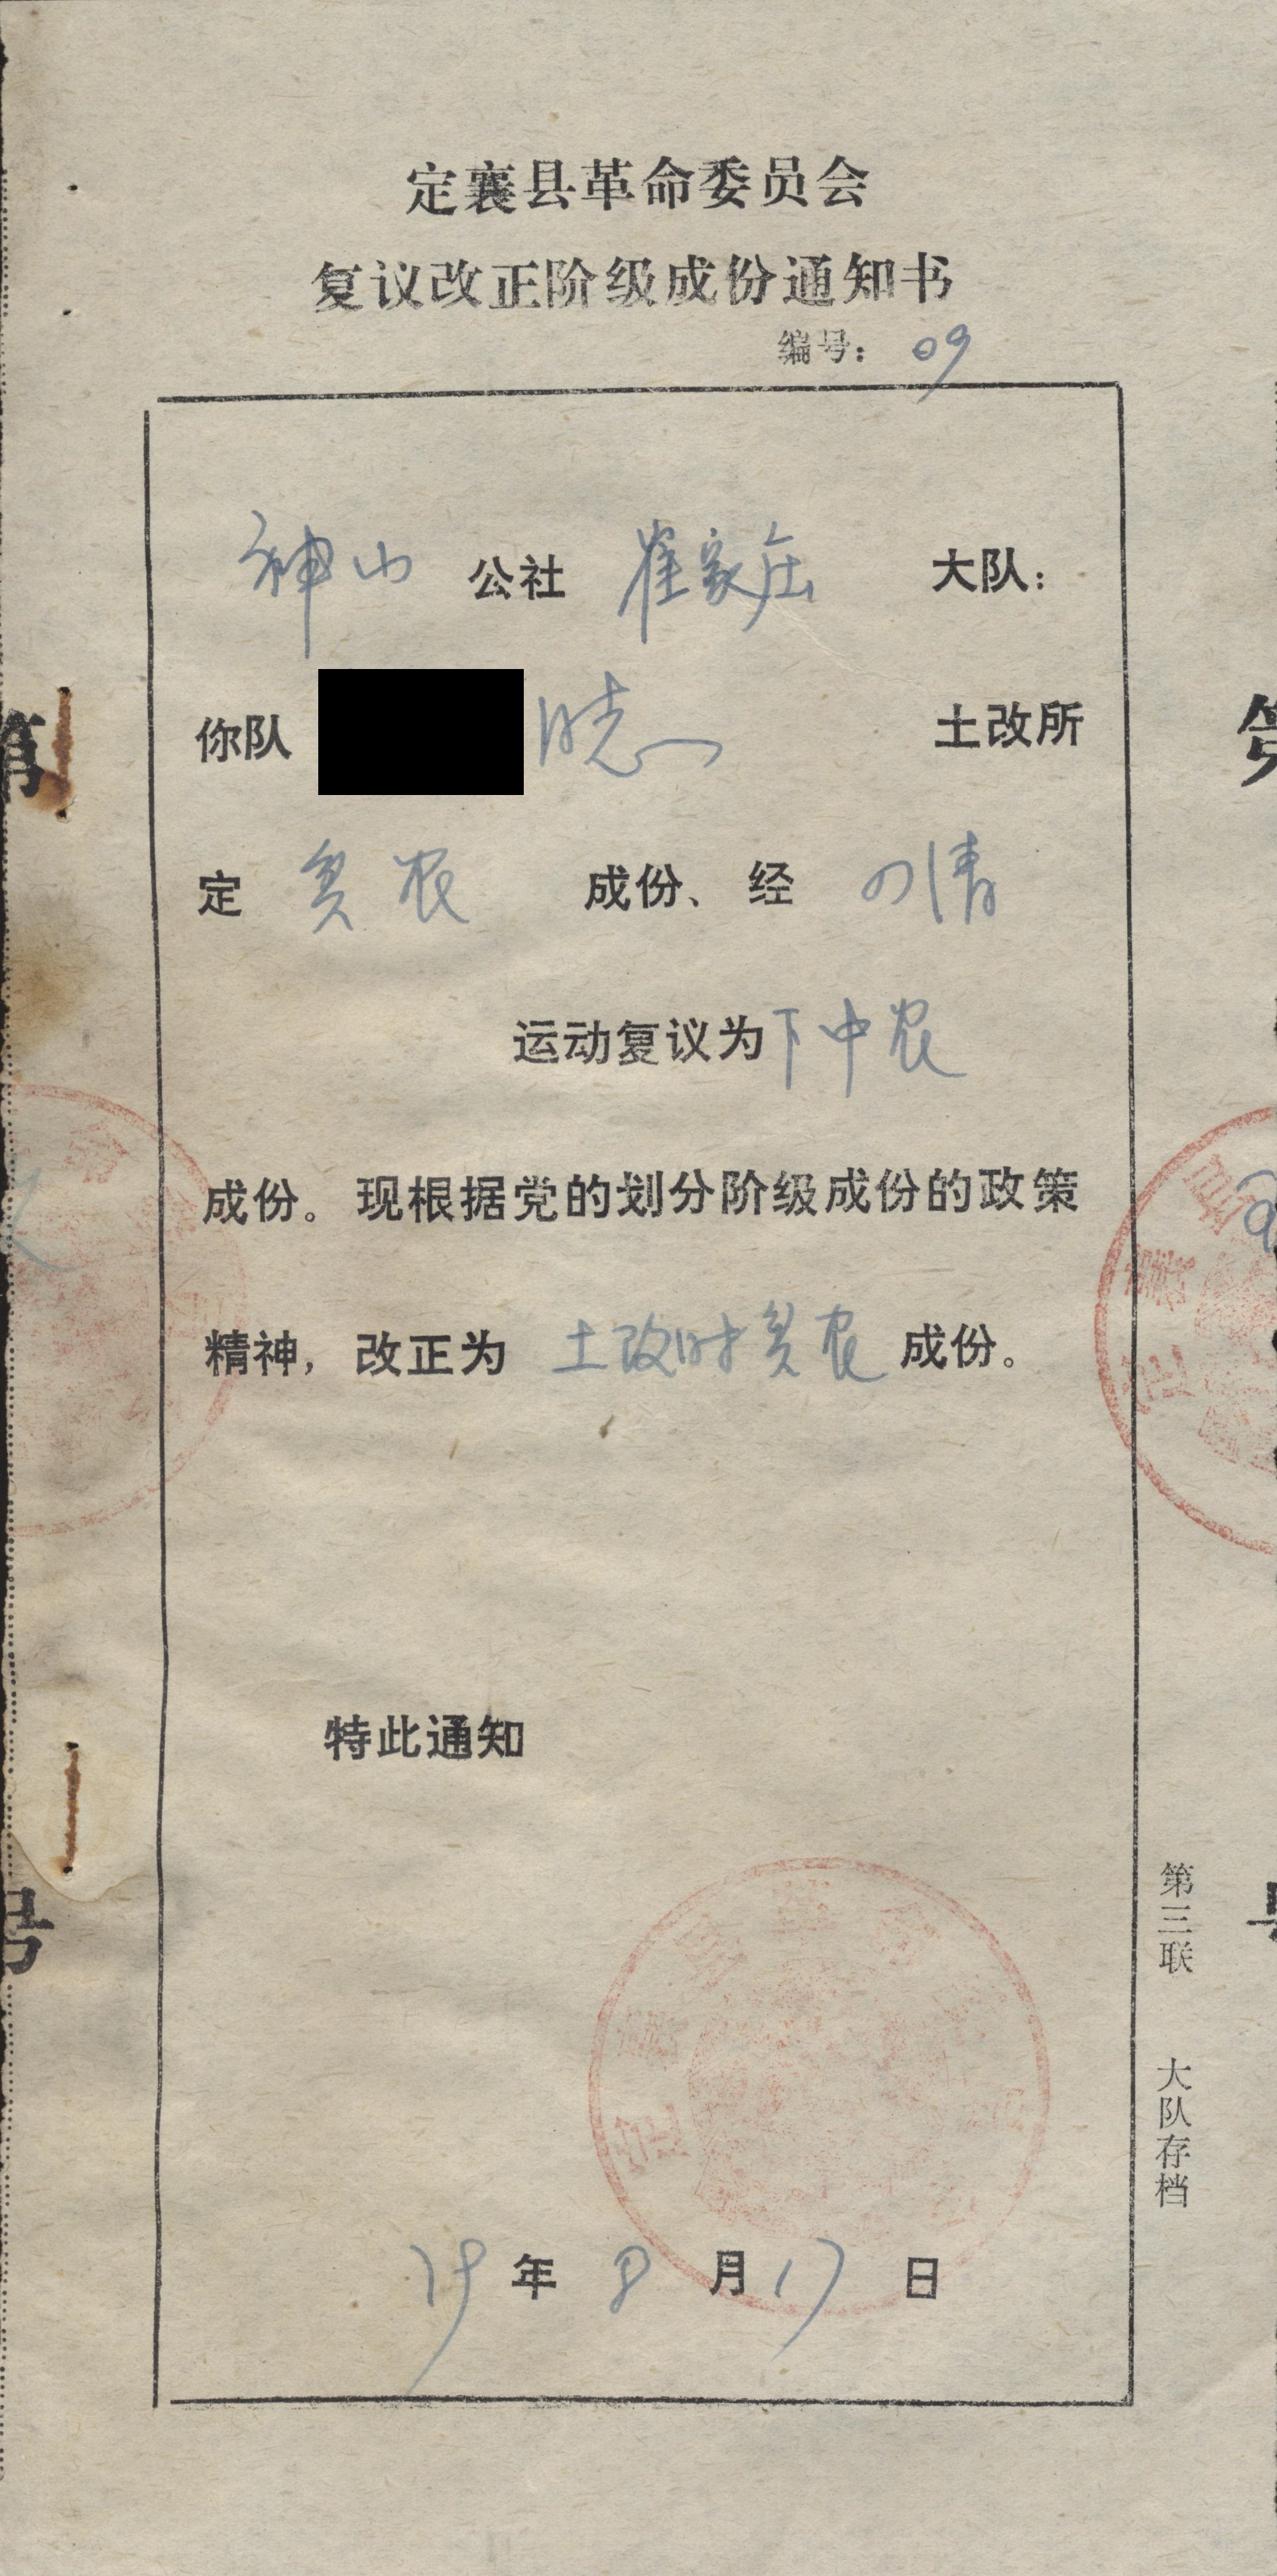 定襄县革命委员会
复议改正阶级成份通知书
编号：09
神山 公社 崔家庄 大队：
你队 土改所
定 贫农 成份、经 四清
运动复议为下中农
成份。现根据党的划分阶级成份的政策
精神，改正为 土改时贫农 成份。
特此通知
79年8月17日
第三联 大队存档
第
号